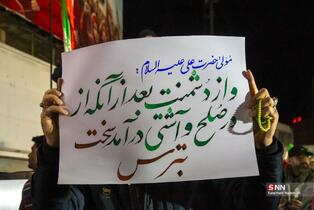 مولیٰ حضرت علی علیه السلام:
و از دشمنت بعد از آنکه از
در صلح و آشتی درآمد سخت
بترس
SNN